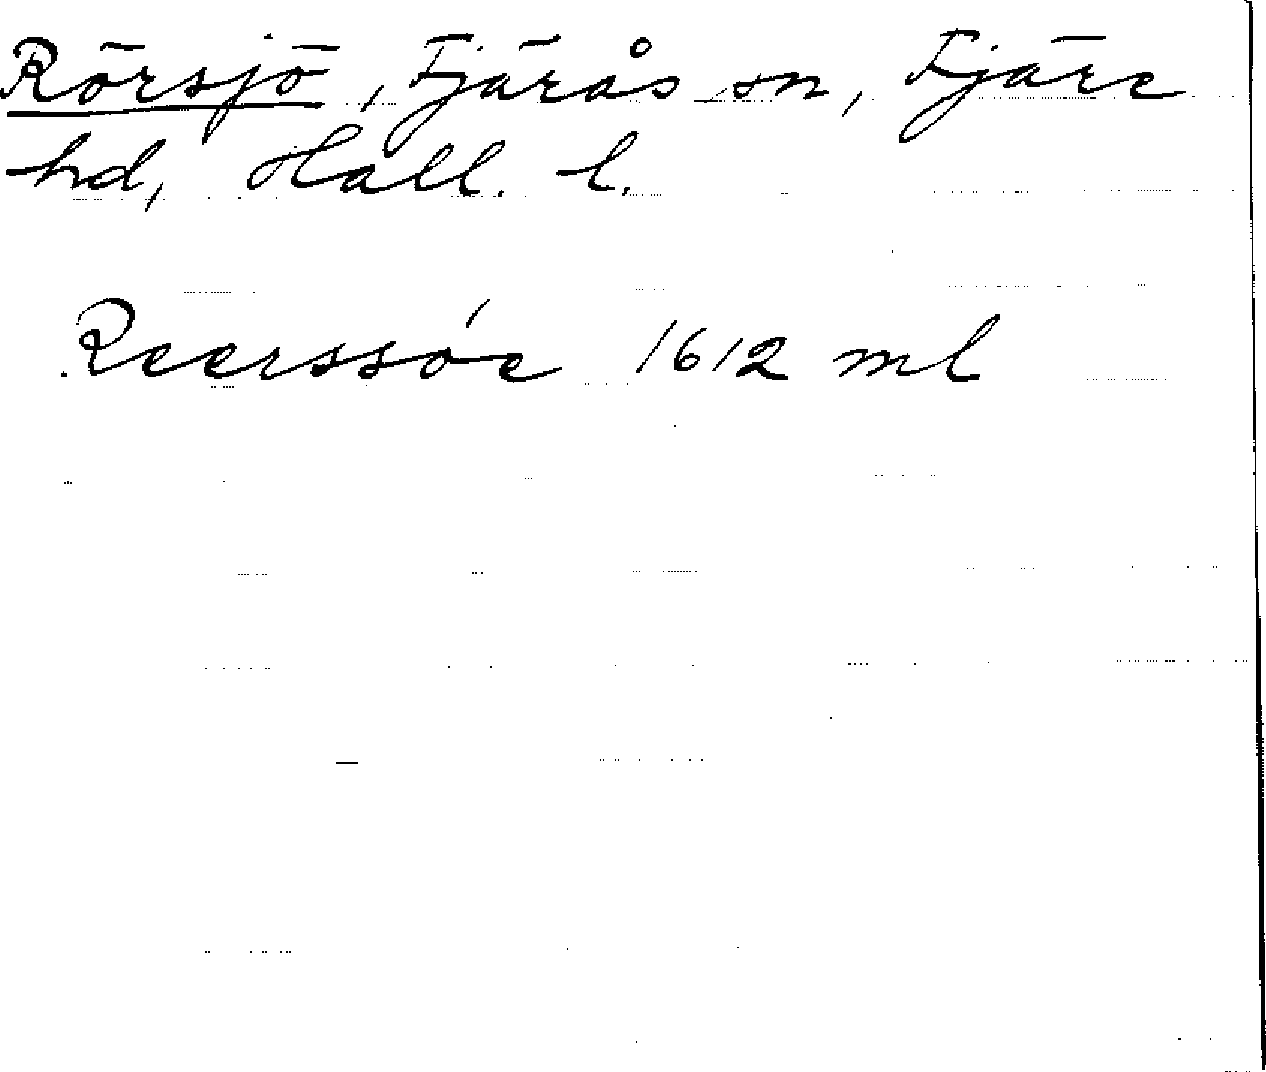 Rörsjö, Fjärås sn, Fjäre
hd, Hall. l.
Reerssóe 1612 ml